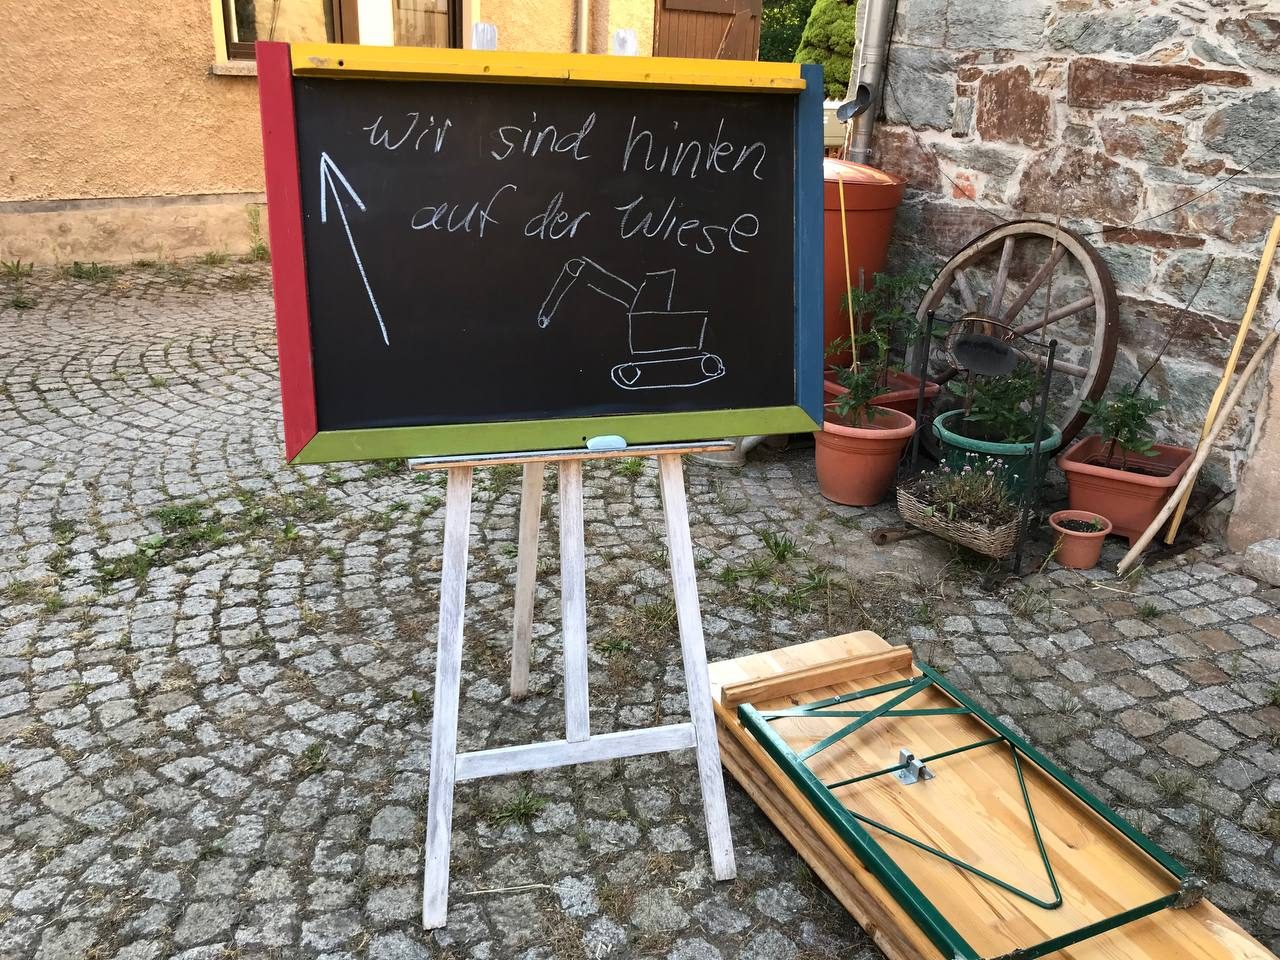 Wir sind hinten
auf der Wiese